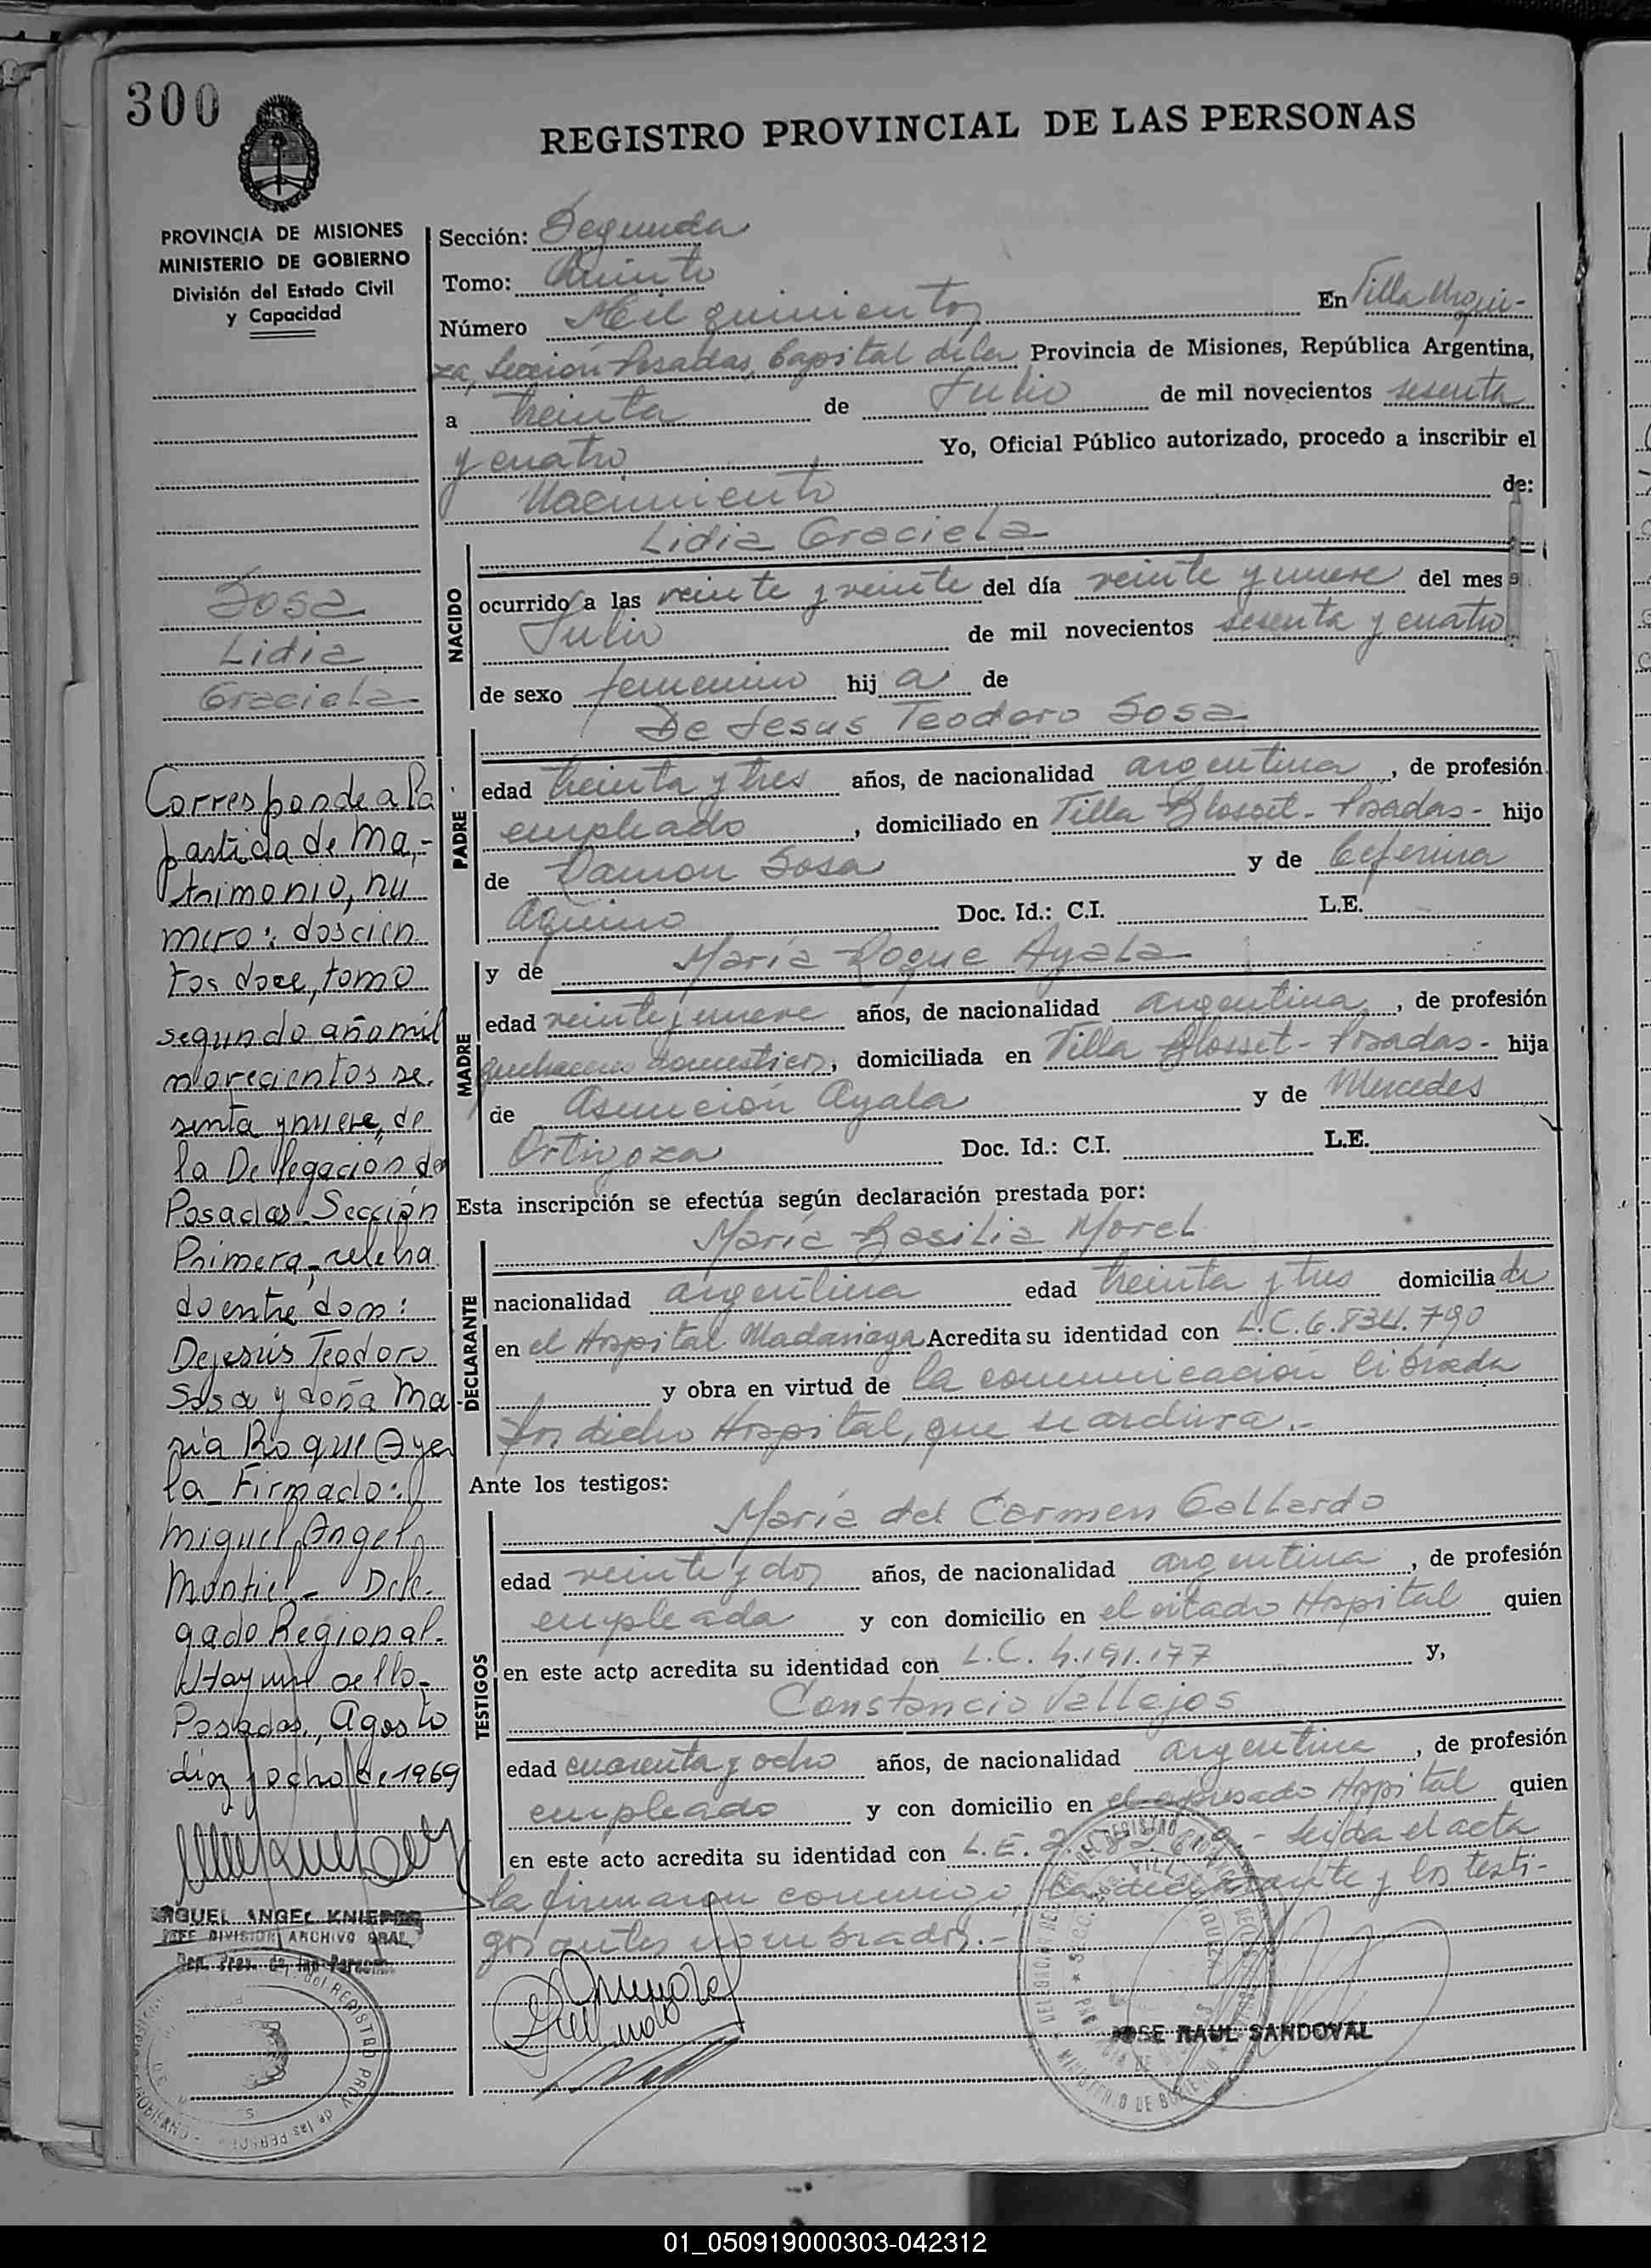 300
REGISTRO PROVINCIAL DE LAS PERSONAS
PROVINCIA DE MISIONES
MINISTERIO DE GOBIERNO
División del Estado Civil
y Capacidad
Sección: Segunda
Tomo: Quinto
Número Mil quinientos En Villa Urqui-
za, Sección Posadas, Capital de la Provincia de Misiones, República Argentina,
a treinta de Julio de mil novecientos sesenta
y cuatro Yo, Oficial Público autorizado, procedo a inscribir el
Nacimiento de:
Lidia Graciela
NACIDO
ocurrido a las veinte y veinte del día veinte y nueve del mes
Julio de mil novecientos sesenta y cuatro
de sexo femenino hij a de
De Jesus Teodoro Sosa
PADRE
edad treinta y tres años, de nacionalidad argentina, de profesión
empleado, domiciliado en Villa Blosset - Posadas - hijo
de Ramon Sosa y de Ceferina
Aquino Doc. Id.: C.I. L.E.
y de María Roque Ayala
MADRE
edad veinte y nueve años, de nacionalidad argentina, de profesión
quehaceres domesticos, domiciliada en Villa Blosset - Posadas - hija
de Asunción Ayala y de Mercedes
Ortigoza Doc. Id.: C.I. L.E.
Esta inscripción se efectúa según declaración prestada por:
María Basilia Morel
DECLARANTE
nacionalidad argentina edad treinta y tres domicilia da
en el Hospital Madariaga Acredita su identidad con L.C. 6.834.790
y obra en virtud de la comunicación librada
por dicho Hospital, que se archiva.-
Ante los testigos:
María del Carmen Gallardo
TESTIGOS
edad veinte y dos años, de nacionalidad argentina, de profesión
empleada y con domicilio en el citado Hospital quien
en este acto acredita su identidad con L.C. 4.191.177 y,
Constancio Vallejos
edad cuarenta y ocho años, de nacionalidad argentina, de profesión
empleado y con domicilio en el expresado Hospital quien
en este acto acredita su identidad con L.E. - Leida el acta
la firmaron conmigo la declarante y los testi-
gos antes nombrados.-
JOSE RAUL SANDOVAL
Sosa
Lidia
Graciela
Corresponde a la
partida de ma,-
trimonio, nu
mero: doscien
tos doce, tomo
segundo año mil
novecientos se.
senta y nueve, de
la Delegacion de
Posadas Sección
Primera, celebra
do entre don:
Dejesús Teodoro
Sosa y doña Ma
ría Roque Aya
la Firmado:
Miguel Angel
Montiel - Dele-
gado Regional.
Hay un sello-
Posadas, Agosto
diez y ocho de 1969
MIGUEL ANGEL KNIEPER
JEFE DIVISION ARCHIVO GRAL.
01_050919000303-042312